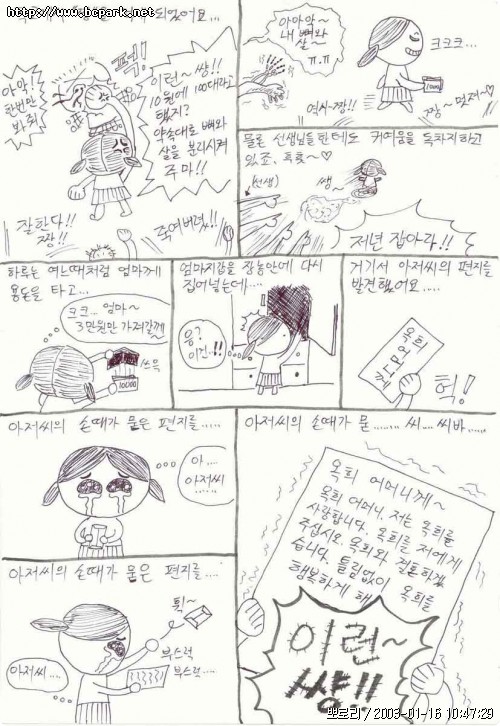 http://www.bcpark.net
되었어요...
퍽!!
아악!
한번만
봐줘!
이런~ 썅!!
10원에 100대라고
했지?
약속대로 뼈와
살을 분리시켜
주마!!
잘한다!!
짱!!
죽여버렸!!
아아악~
내 뼈와
살~
ㅠ.ㅠ
크크크...
역시~짱!!
짱~ 멋져~♡
물론 선생님들한테도 귀여움을 독차지하고
있죠. 흐흣~♡
(선생)
쌩~
저년 잡아라!!
하루는 여느때처럼 엄마께
용돈을 타고...
크크... 엄마~
3만원만 가져갈께
쓰윽
10000
엄마지갑을 장농안에 다시
집어넣는데....
응?
이건..!!
거기서 아저씨의 편지를
발견했어요.....
옥희
어머니께
헉!
아저씨의 손때가 묻은 편지를.....
아....
아저씨
아저씨의 손때가 묻....... 씨.... 씨바....
옥희 어머니께~
옥희 어머니. 저는 옥희를
사랑합니다. 옥희를 저에게
주십시오. 옥희와 결혼하겠
습니다. 틀림없이 옥희를
행복하게 해
이런~
썅!!
아저씨의 손때가 묻은 편지를....
휙~
부스럭
부스럭...
아저씨....
뽀로리 / 2003-01-16 10:47:29